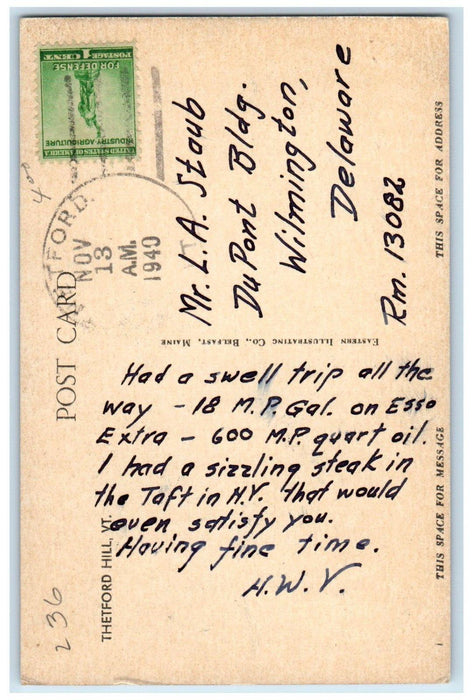 UNITED STATES OF AMERICA
INDUSTRY AGRICULTURE
FOR DEFENSE
1 CENT 1
POSTAGE
THETFORD.
NOV
13
A.M.
1940
POST CARD
THIS SPACE FOR ADDRESS
Mr. L.A. Staub
DuPont Bldg.
Wilmington,
Delaware
Rm. 13082
EASTERN ILLUSTRATING CO., BELFAST, MAINE
Had a swell trip all the
way - 18 M.P. Gal. on Esso
Extra - 600 M.P. quart oil.
I had a sizzling steak in
the Taft in N.Y. that would
even satisfy you.
Having fine time.
H.W.V.
THETFORD HILL, VT.
THIS SPACE FOR MESSAGE
236